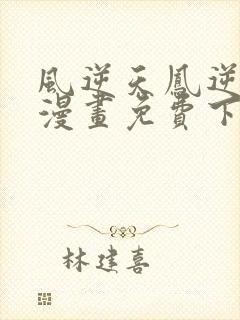 風逆天鳳逆
漫畫免費下
林建喜